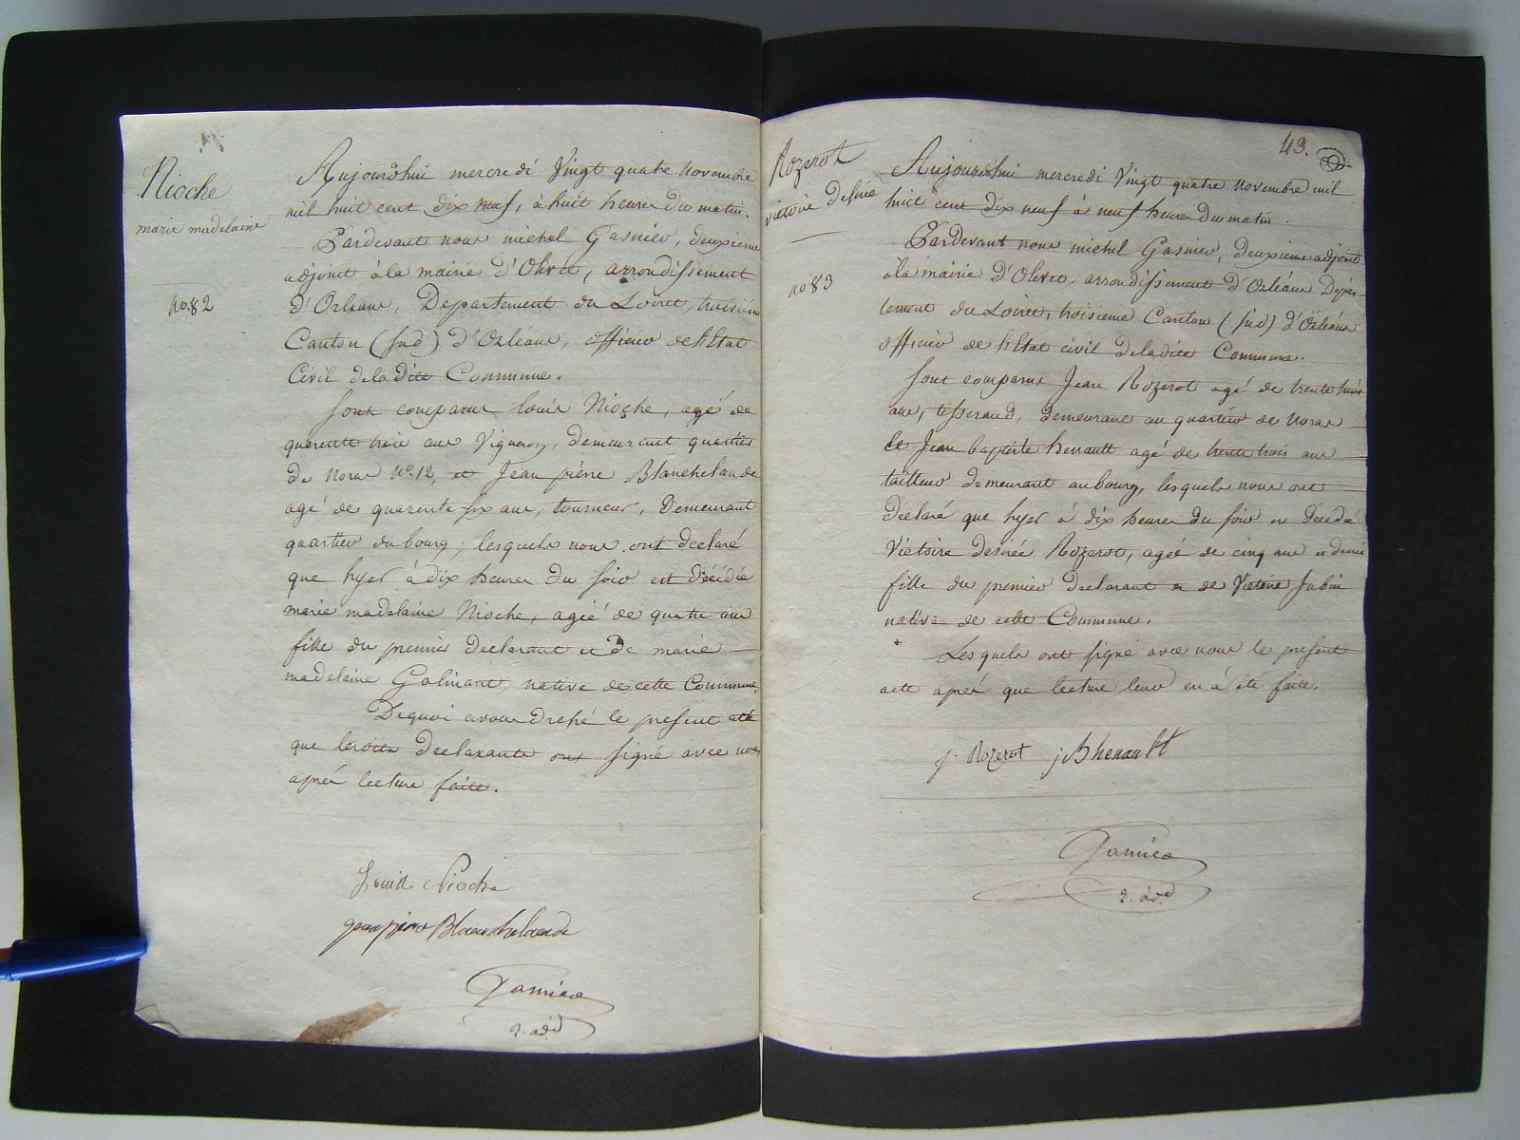 Nioche
marie madelaine
no. 82
Aujourdhui mercredi Vingt quatre novembre
mil huit cent dix neuf, à huit heures du matin.
Pardevant nous michel Gasnier, deuxieme
adjoint à la mairie d'Olivet, arrondissement
d'Orléans, Departement du Loiret, troisieme
Canton (sud) d'Orléans, officier de l'Etat
Civil de la Dite Commune.
Sont comparus louis Nioche, agé de
quarente trois ans Vigneron, demeurant quartier
de Noras No. 12, et Jean pierre Blanchelande
agé de quarente six ans, tourneur, Demeurant
quartier du bourg, lesquels nous ont declaré
que hyer à dix heures du soir est décédée
marie madelaine Nioche, agée de quatre ans
fille du premier Declarant et de marie
madelaine Galinant, native de cette Commune.
De quoi avons dressé le present acte
que lesdits Declarants ont signé avec nous
après lecture faite.
Louis Nioche
jean pierre Blanchelande
Gasnier
2. adj
43.
Rozerot
victoire desirée
no. 83
Aujourdhui mercredi Vingt quatre novembre mil
huit cent dix neuf à neuf heures du matin.
Pardevant nous michel Gasnier, Deuxieme adjoint
à la mairie D'Olivet, arrondissement D'Orléans Depar-
tement du Loiret, troisieme Canton (sud) d'Orléans
officier de l'Etat civil de la dite Commune.
Sont comparus Jean Rozerot agé de trente huit
ans, tisserand, demeurant au quartier de Noras
et Jean baptiste henault agé de trente trois ans
tailleur demeurant au bourg, lesquels nous ont
declaré que hyer à dix heures du soir est decedée
Victoire desirée Rozerot, agée de cinq ans et demi
fille du premier declarant et de Victoire Jubin
native de cette Commune.
Lesquels ont signé avec nous le present
acte après que lecture leur en à été faite.
j. Rozerot jBhenault
Gasnier
2. adj